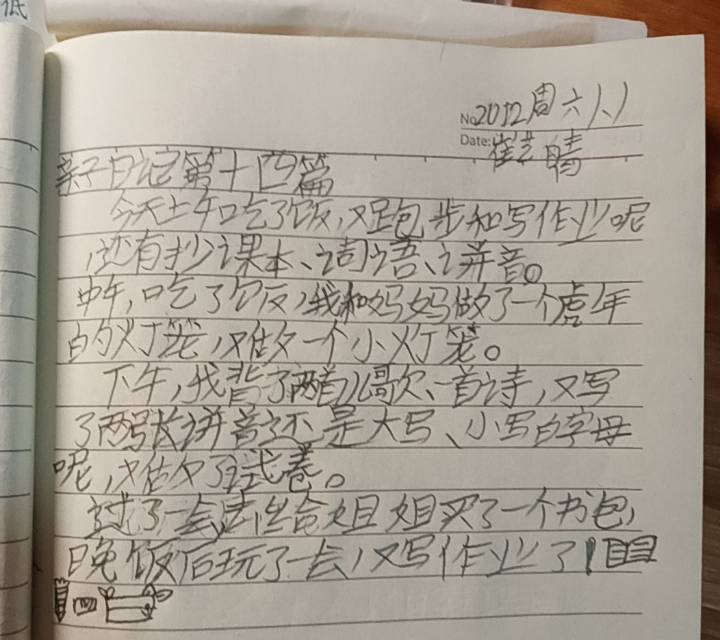 低
No. 2012周六1、1
Date: 崔艺晴
亲子日记第十四篇
今天上午吃了饭,又跑步和写作业呢
,还有抄课本、词语、拼音。
中午,吃了饭,我和妈妈做了一个虎年
的灯笼,又做个小灯笼。
下午,我背了两首儿歌、一首诗,又写
了两张拼音还是大写、小写的字母
呢,又做了试卷。
过了一会,去给姐姐买了一个书包,
晚饭后玩了一会,又写作业了!